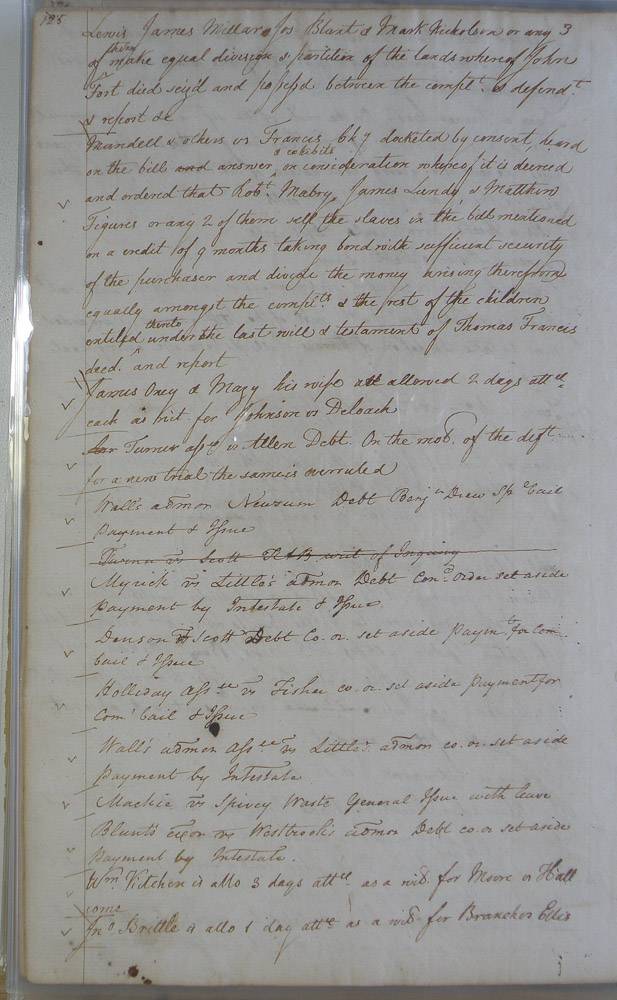 188
Lewis James Millar Jos Blunt & Mark Nicholson or any 3
of them make equal division & partition of the lands whereof John
Fort died seiz'd and possess'd between the complt. & defendt.
& report &c
Mandell & others vs Francis Chy docketed by consent, heard
on the bill and answer & exhibits, on consideration whereof it is decreed
and ordered that Robt. Mabry, James Lundy & Matthew
Figures or any 2 of them sell the slaves in the bill mentioned
on a credit of 9 months taking bond with sufficient security
of the purchaser and divide the money arising therefrom
equally amongst the complts. & the rest of the children
entitled thereto under the last will & testament of Thomas Francis
decd. and report
James Oney & Mary his wife are allowed 2 days attce.
each as wit. for Johnson vs Deloach
Turner assee vs Allen Debt. On the mot. of the deft.
for a new trial the same is overruled
Wall's admor Newsum Debt Benjn Drew Spe bail
payment & Issue
vs Scott writ of Inquiry
Myrick vs Little's admor Debt Con. order set aside
payment by Intestate & Issue
Denson vs Scott Debt Co. or. set aside paymt. for Com.
bail & Issue
Holliday Assee vs Fisher co. or. set aside payment for
Com. bail & Issue
Wall's admor Assee vs Little's admor co. or. set aside
payment by Intestate
Mackie vs Spivey Waste General Issue with leave
Blunt's exor vs Westbrook's admor Debt co. or set aside
payment by Intestate.
Wm. Kitchen is allo 3 days attce. as a wit. for Moore vs Hall
Jno. Brittle is allo 1 day attce as a wit. for Branch vs Ellis